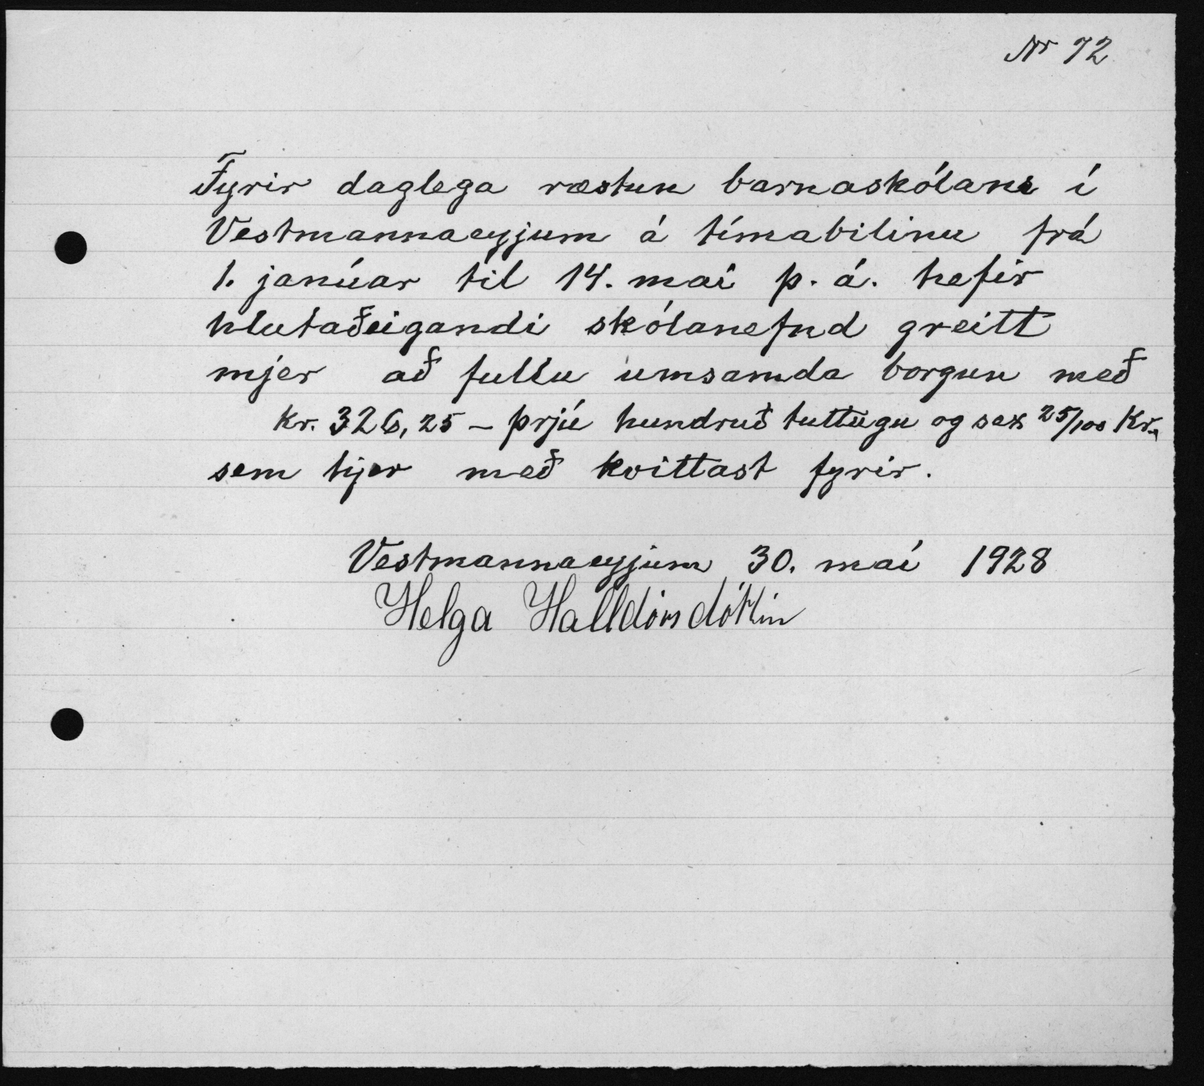 Nr 72
Fyrir daglega ræstun barnaskólans í
Vestmannaeyjum á tímabilinu frá
1. janúar til 14. maí þ. á. hefir
hlutaðeigandi skólanefnd greitt
mjer að fullu umsamda borgun með
kr. 326,25 – þrjú hundruð tuttugu og sex 25/100 Kr.
sem hjer með kvittast fyrir.
Vestmannaeyjum 30. maí 1928
Helga Halldórsdóttir